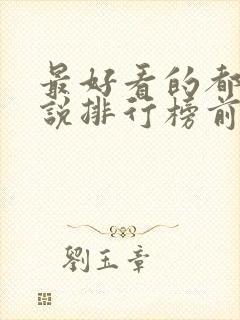 最好看的都
說排行榜前
劉玉章